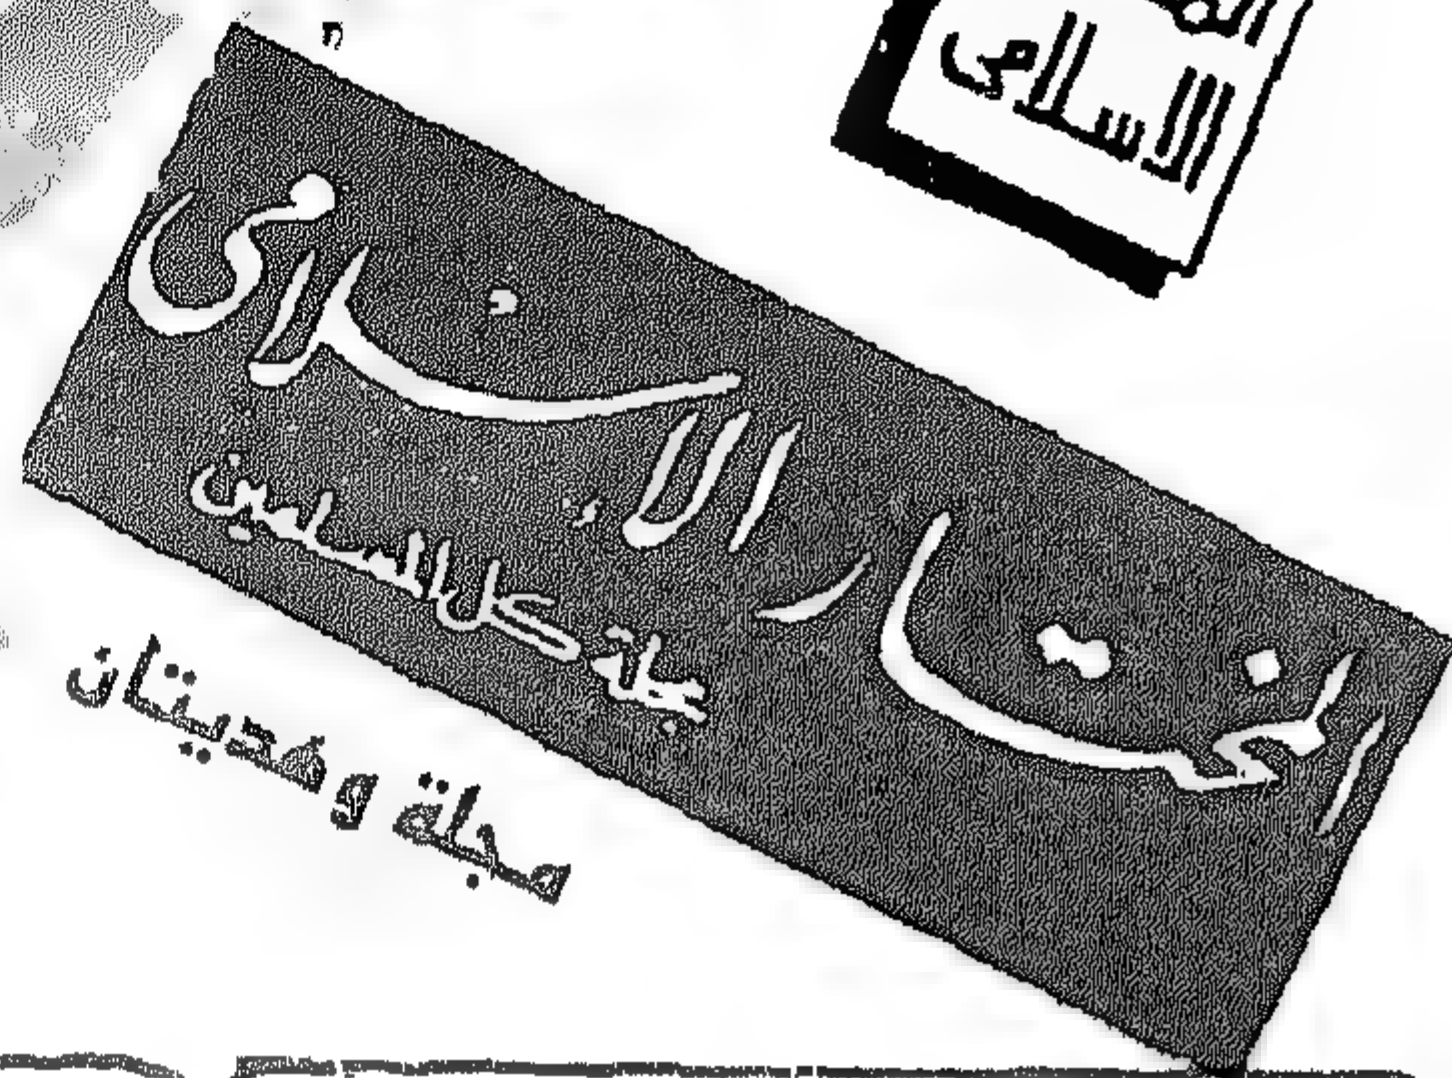 الاسلامى
المختار الإسلامى
مجلة كل المسلمين
مجلة وهديتان